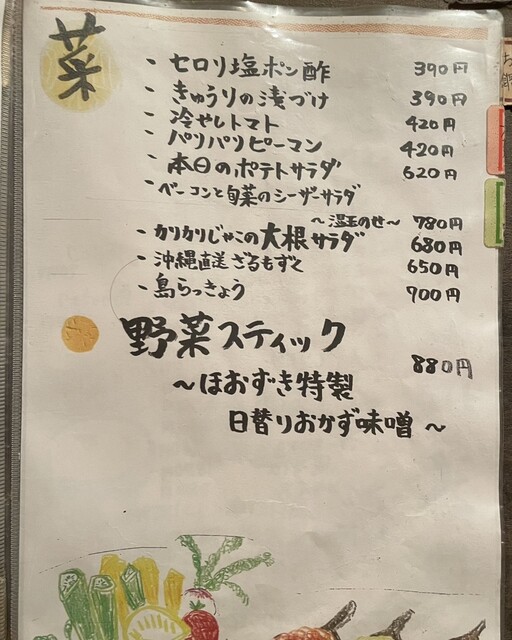 菜
・セロリ塩ポン酢 390円
・きゅうりの漬づけ 390円
・冷やしトマト 420円
・パリパリピーマン 420円
・本日のポテトサラダ 620円
・ベーコンと旬菜のシーザーサラダ
〜温玉のせ〜 780円
・カリカリじゃこの大根サラダ 680円
・沖縄直送ざるもずく 650円
・島らっきょう 700円
野菜スティック
880円
〜ほおずき特製
日替りおかず味噌〜